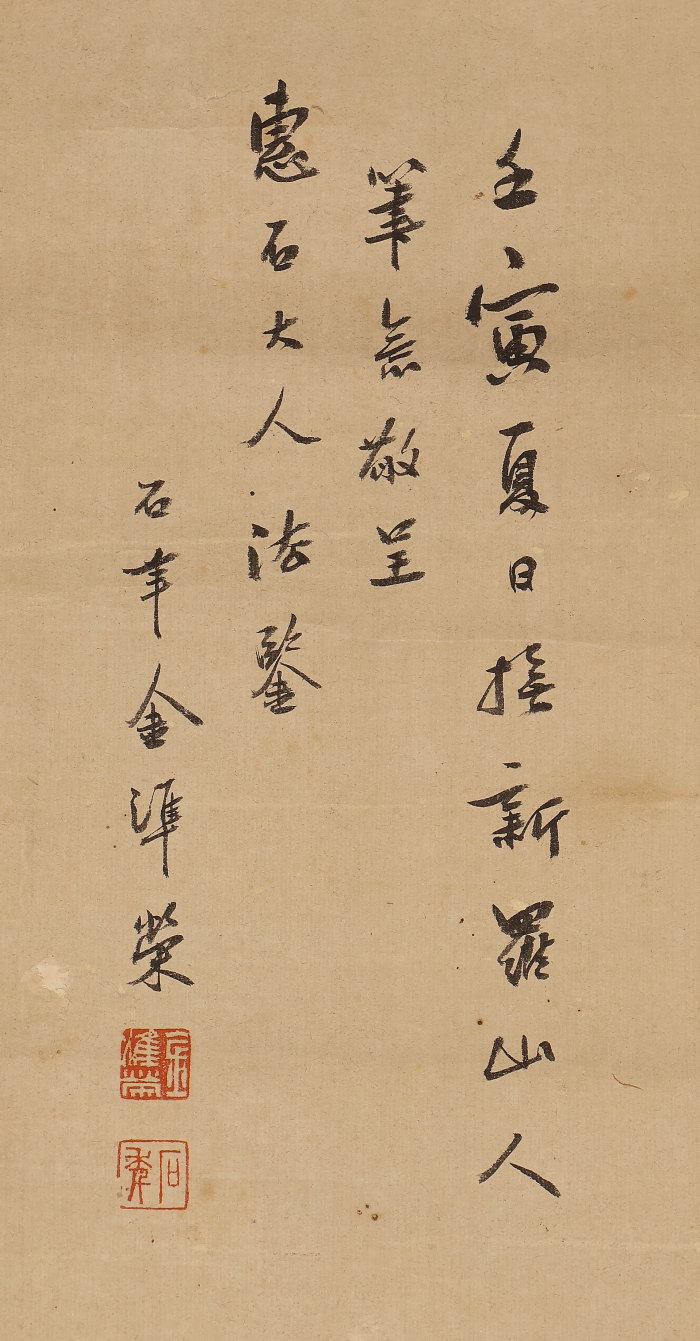 壬寅夏日撫新羅山人
筆意敬呈
惠石大人法鑒
石年金準榮